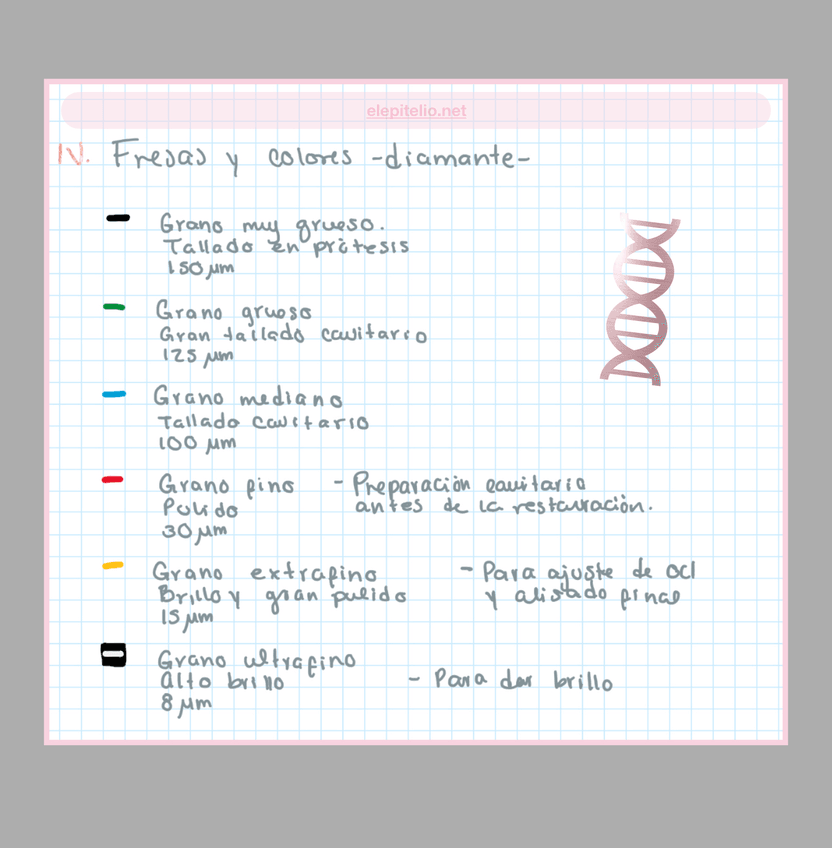 elepitelio.net
IV. Fresas y colores -diamante-
Grano muy grueso.
Tallado en prótesis
150 µm
Grano grueso
Gran tallado cavitario
125 µm
Grano mediano
Tallado cavitario
100 µm
Grano fino - Preparación cavitaria
Pulido antes de la restauración.
30 µm
Grano extrafino - Para ajuste de ocl
Brillo y gran pulido y alisado final
15 µm
Grano ultrafino
Alto brillo - Para dar brillo
8 µm